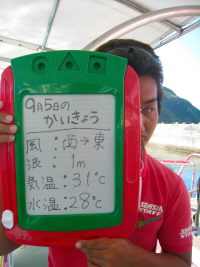 9月5日の
かいきょう
風：西→東
浪：1m
気温：31℃
水温：28℃
STAFF